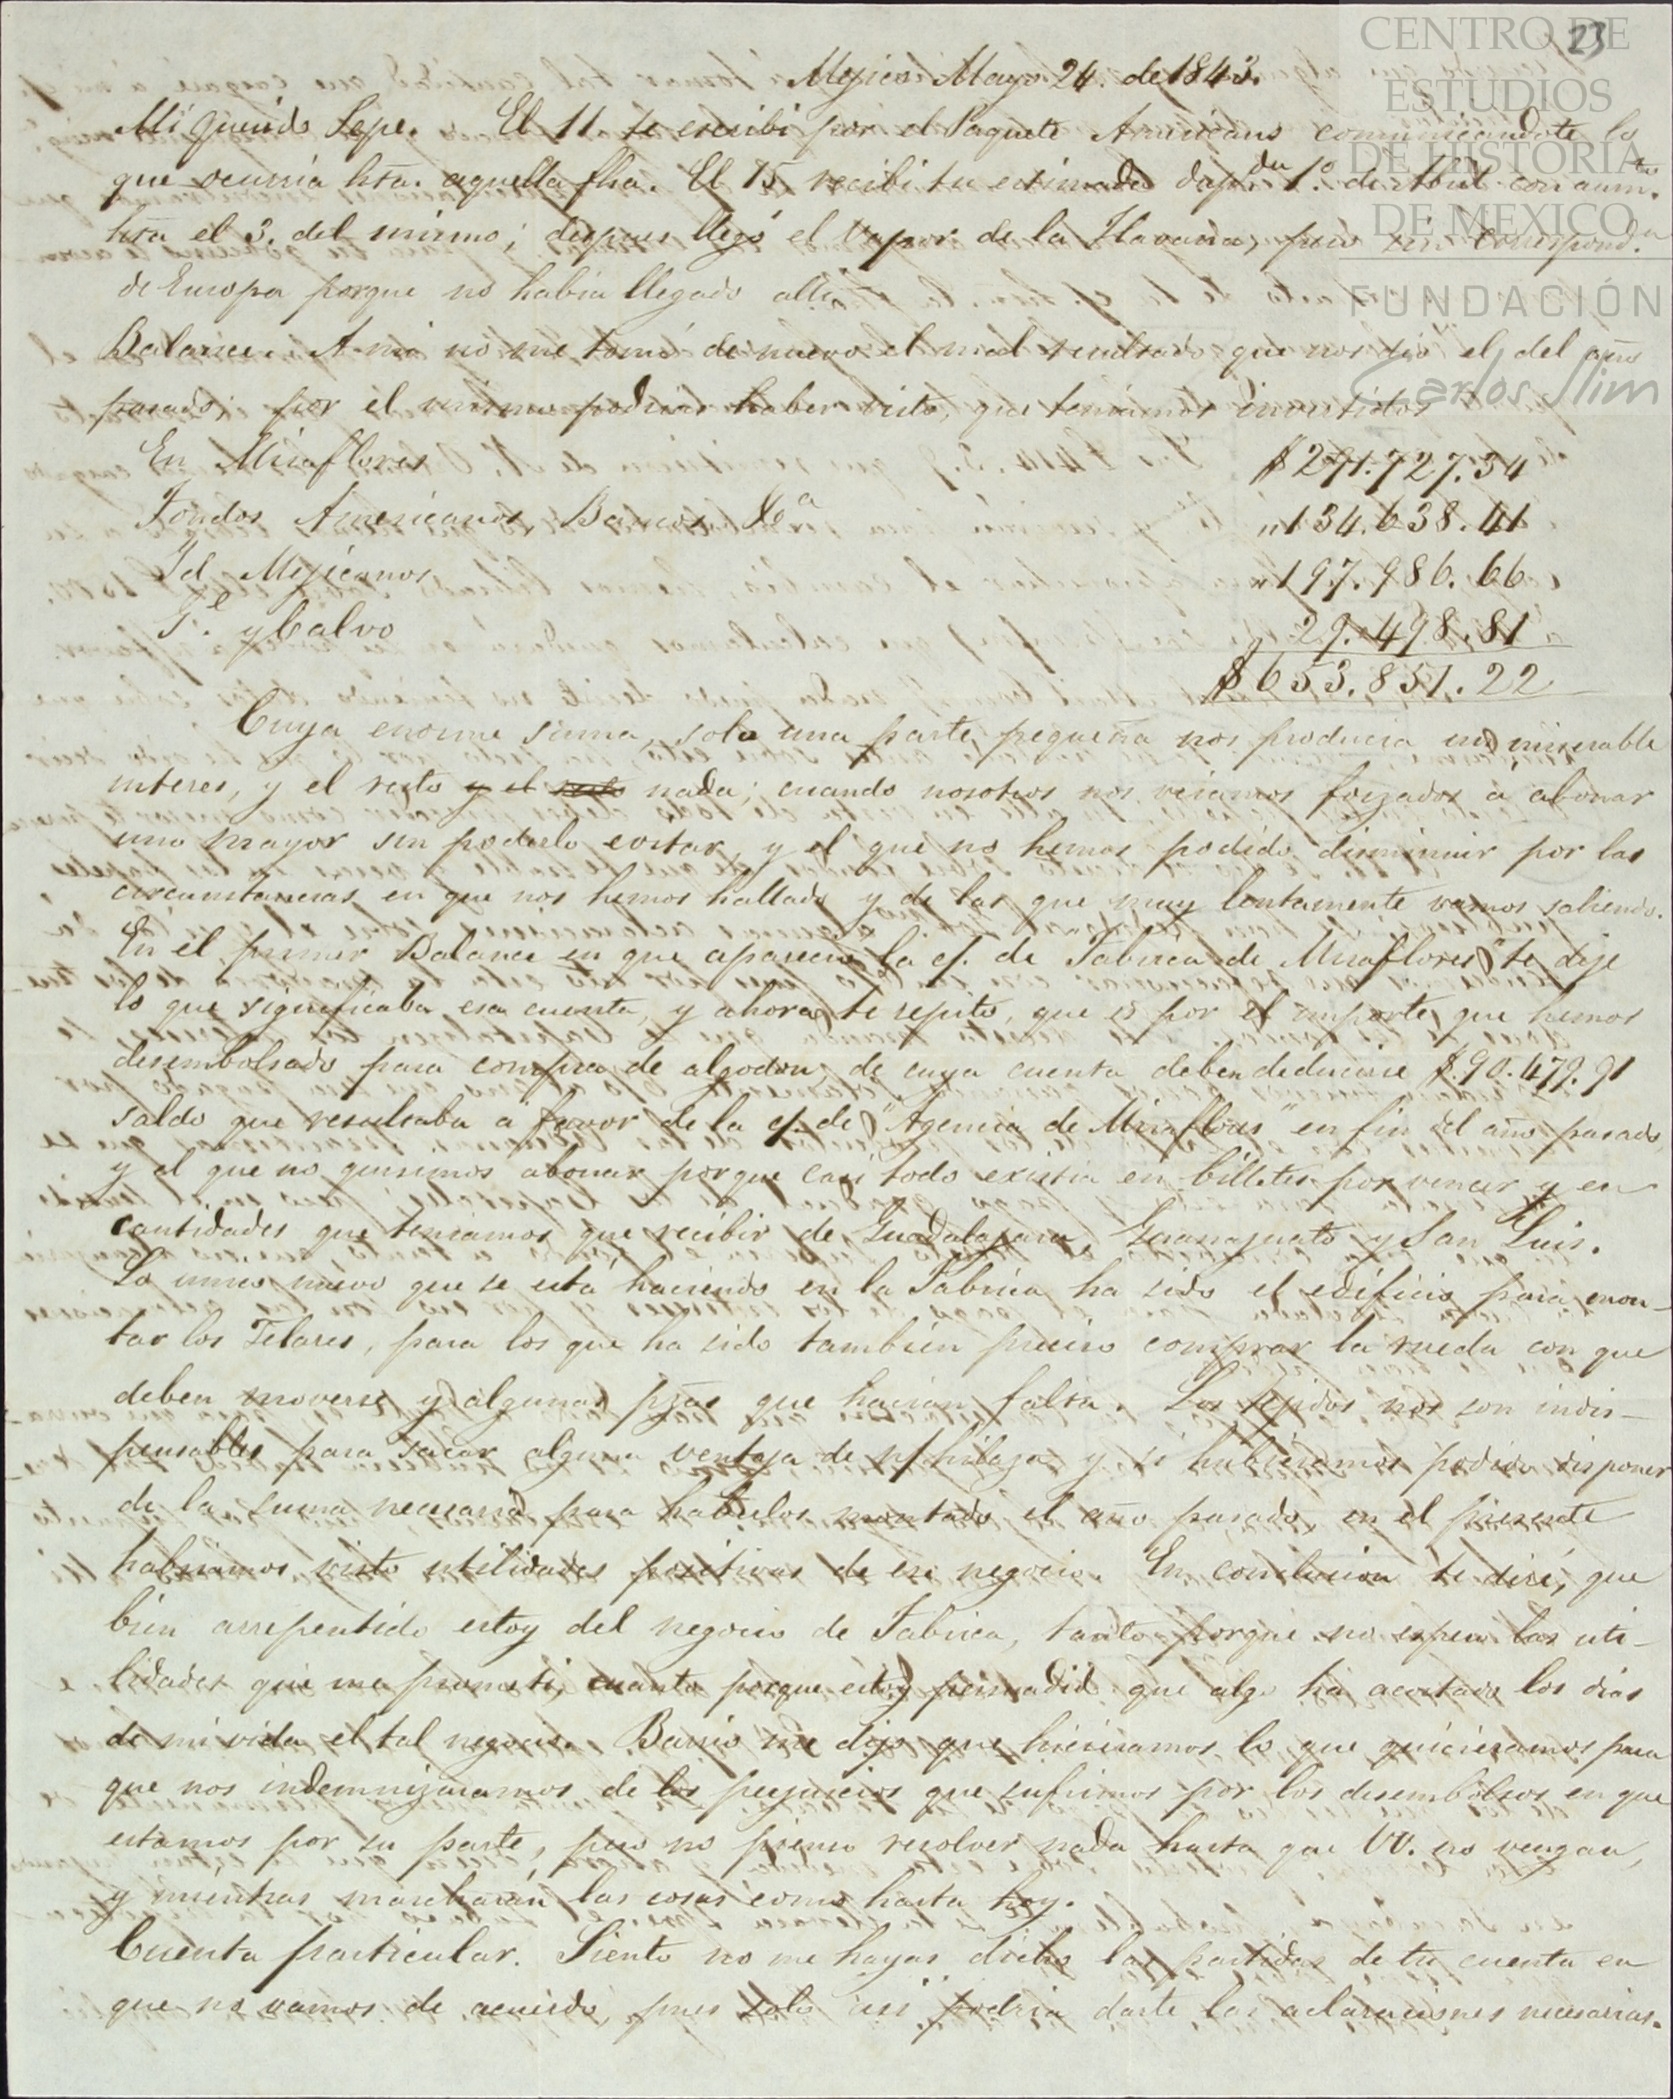 CENTRO DE
ESTUDIOS
DE HISTORIA
DE MEXICO
FUNDACIÓN
Carlos Slim
23
Mejico Mayo 24. de 1843.
Mi querido Pepe. El 11 te escribi por el Paquete Americano comunicandote lo
que ocurria hta. aquella fha. El 15 recibi tu estimada dup.da 1.º de Abril con aum.to
hta el 3. del mismo; despues llegó el Vapor de la Havana, pero sin correspond.a
de Europa porque no habia llegado alli.
Balance. A mi no me tomó de nuevo el mal resultado que nos dió el del año
pasado; por el mismo podrias haber visto, que teniamos invertidos
En Miraflores $271.727.34
Fondos Americanos Bancos &.a " 134.638.41
Id Mejicanos " 197.986.66
G.e y Calvo " 29.498.81
$653.851.22
Cuya enorme suma, solo una parte pequeña nos producia un miserable
interes, y el resto y el resto nada; cuando nosotros nos viamos forzados á abonar
uno mayor sin poderlo evitar, y el que no hemos podido disminuir por las
circumstancias en que nos hemos hallado y de las que muy lentamente vamos saliendo.
En el primer Balance en que aparecia la c/. de Fabrica de Miraflores te dije
lo que significaba esa cuenta, y ahora te repito, que es por el importe que hemos
desembolsado para compra de algodon, de cuya cuenta deben deducirse $.90.479.91
saldo que resultaba á favor de la c/. de "Agencia de Miraflores" en fin del año pasado,
y el que no quisimos abonar porque casi todo existia en billetes por vencer y en
cantidades que teniamos que recibir de Guadalajara, Guanajuato y San Luis.
Lo unico nuevo que se está haciendo en la Fabrica ha sido el edificio para mon-
tar los Telares, para los que ha sido tambien preciso comprar la rueda con que
deben moverse y algunas pzas que hacian falta. Los tejidos nos son indis-
pensables para sacar alguna ventaja de n/ hilaza y si hubieramos podido disponer
de la suma necesaria para haberlos montado el año pasado, en el presente
habriamos visto utilidades positivas de ese negocio. En conclusion te diré, que
bien arrepentido estoy del negocio de Fabrica, tanto porque no espero las uti-
lidades que me prometi, cuanto porque estoy persuadido que algo ha acortado los dias
de mi vida el tal negocio. Barrio me dijo que hicieramos lo que quisieramos para
que nos indemnizaramos de los perjuicios que sufrimos por los desembolsos en que
estamos por su parte, pero no pienso resolver nada hasta que VV. no vengan,
y mientras marcharán las cosas como hasta hoy.
Cuenta particular. Siento no me hayas dicho las partidas de tu cuenta en
que no vamos de acuerdo, pues solo asi podria darte las aclaraciones necesarias.